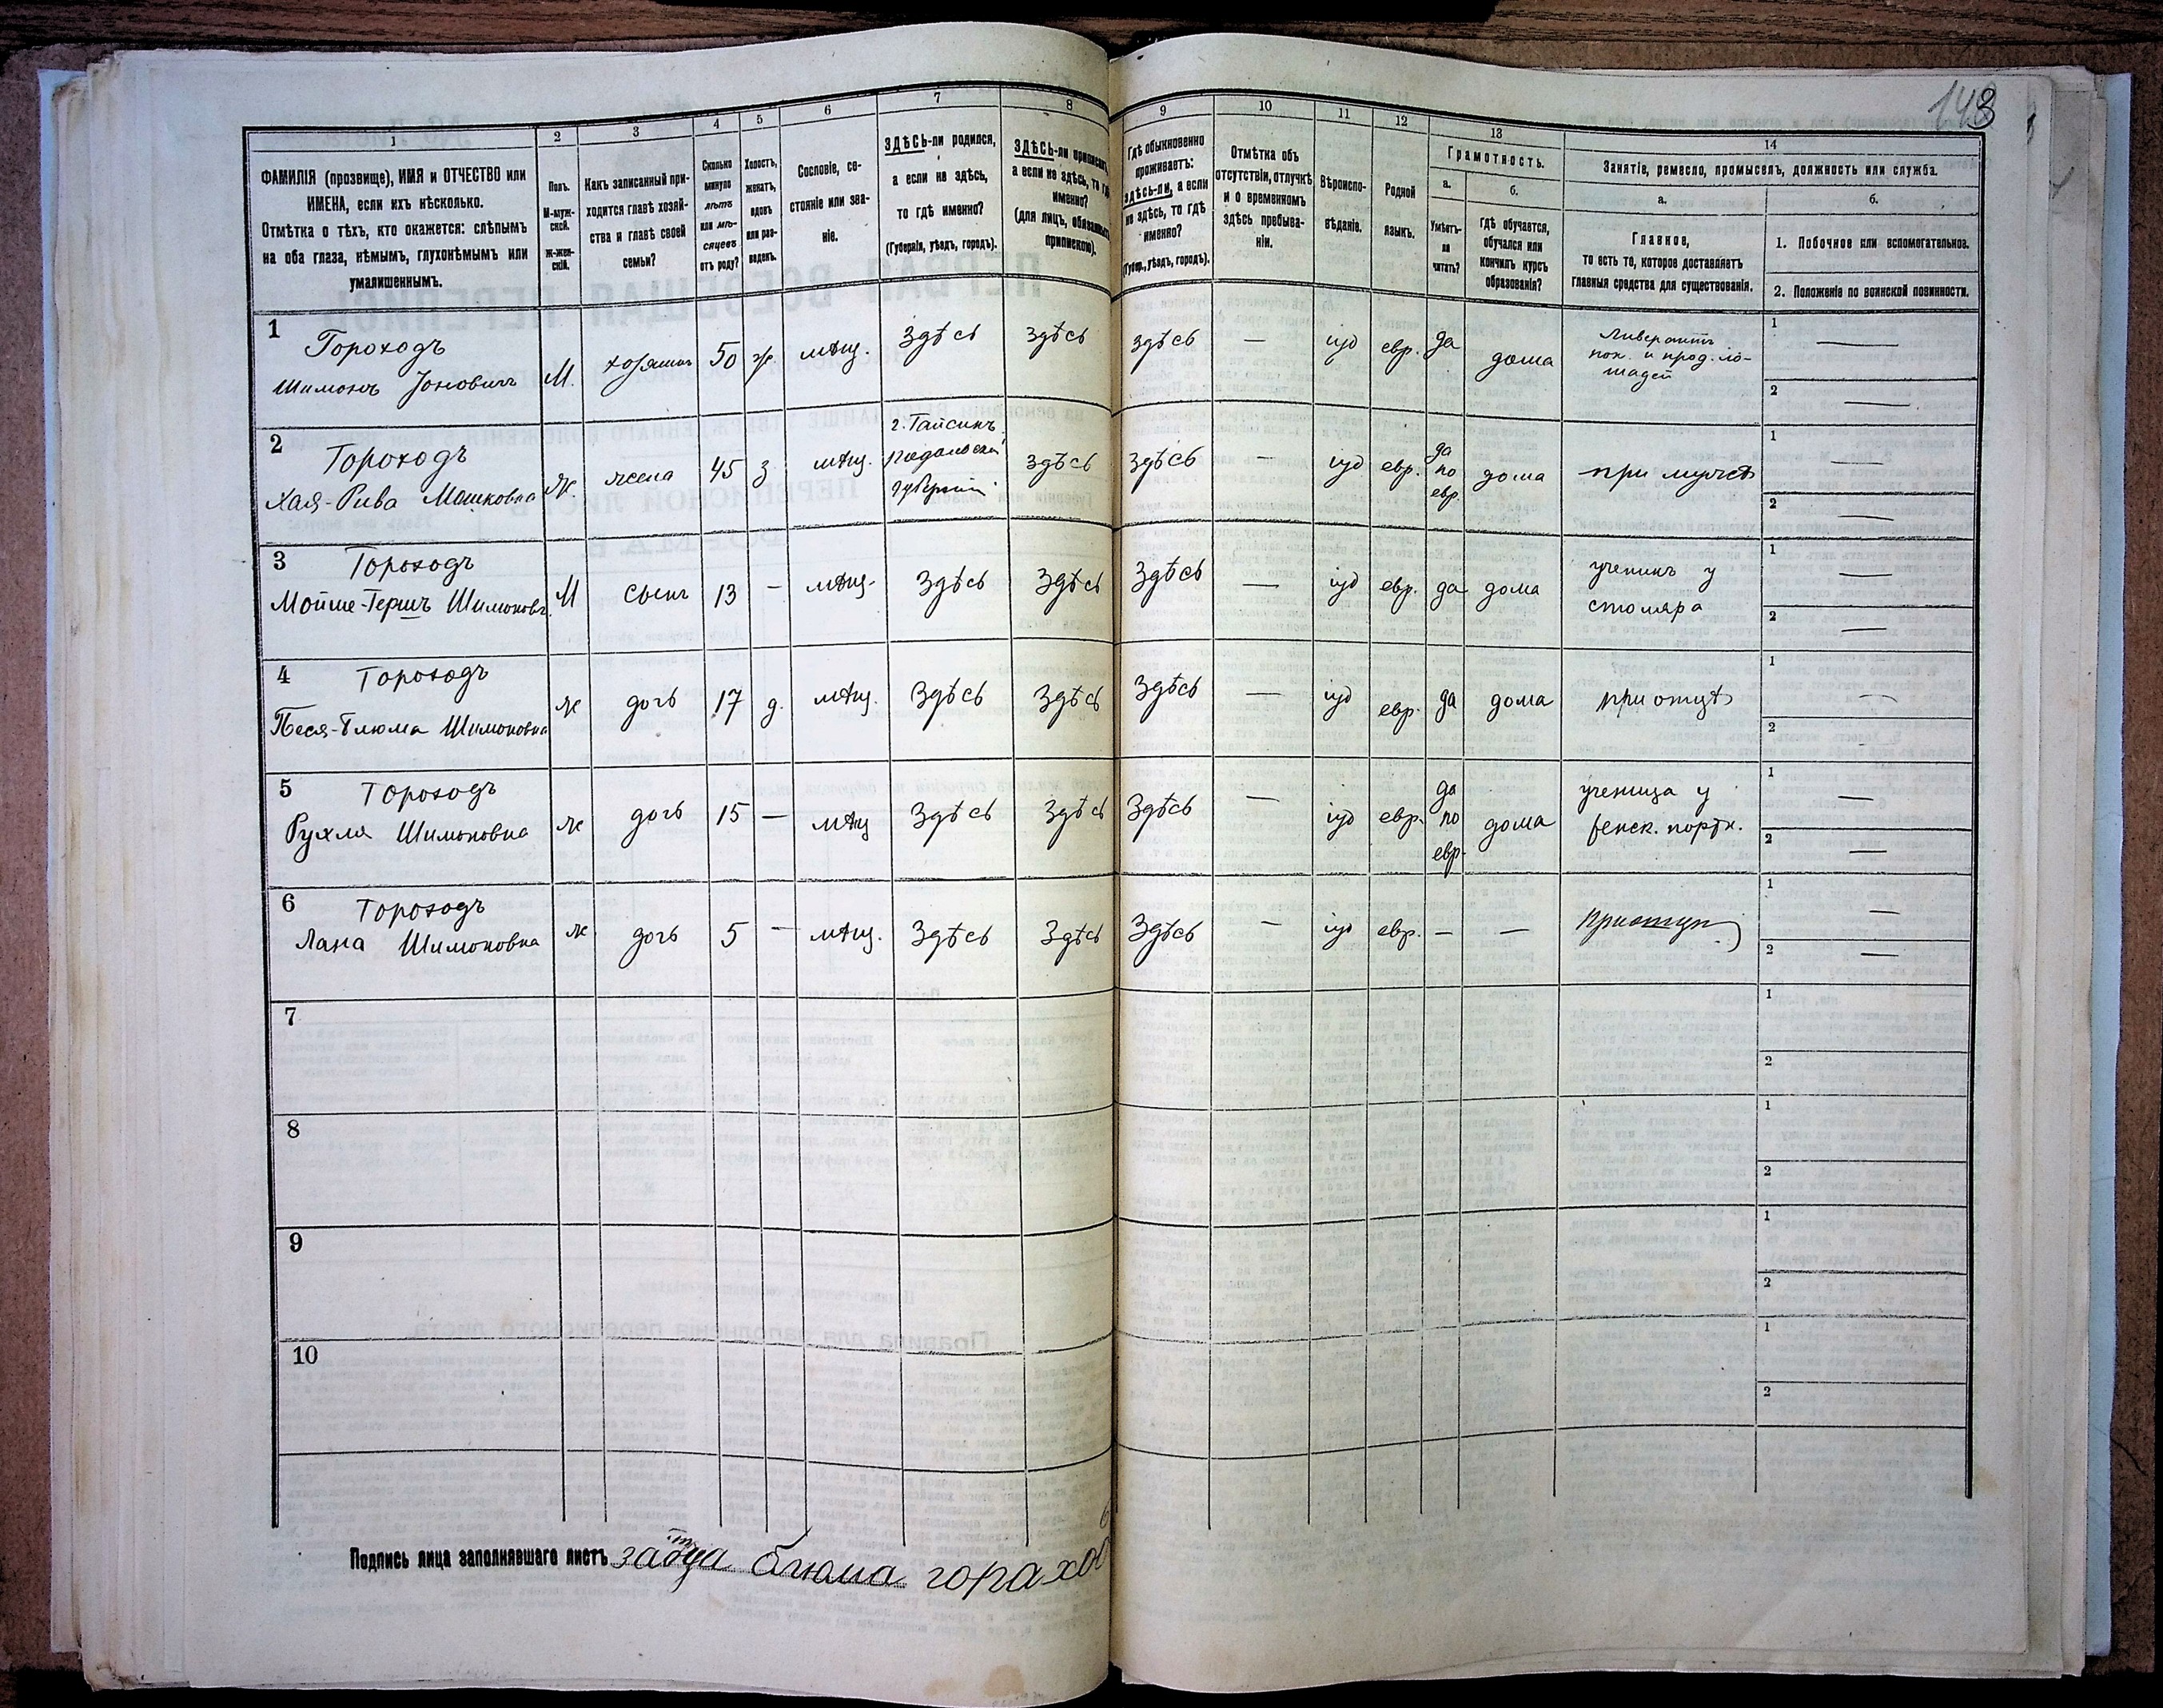 148
1 2 3 4 5 6 7 8 9 10 11 12 13 14
ФАМИЛІЯ (прозвище), ИМЯ и ОТЧЕСТВО или
ИМЕНА, если ихъ нѣсколько.
Отмѣтка о тѣхъ, кто окажется: слѣпымъ
на оба глаза, нѣмымъ, глухонѣмымъ или
умалишеннымъ.
Полъ.
М-муж-
ской.
Ж-жен-
скій.
Какъ записанный при-
ходится главѣ хозяй-
ства и главѣ своей
семьи?
Сколько
минуло
лѣтъ
или мѣ-
сяцевъ
отъ роду?
Холостъ,
женатъ,
вдовъ
или раз-
веденъ.
Сословіе, со-
стояніе или зва-
ніе.
ЗДѢСЬ-ли родился,
а если не здѣсь,
то гдѣ именно?
(Губернія, уѣздъ, городъ).
ЗДѢСЬ-ли приписанъ,
а если не здѣсь, то гдѣ
именно?
(для лицъ, обязанныхъ
припискою).
Гдѣ обыкновенно
проживаетъ:
здѣсь-ли, а если
не здѣсь, то гдѣ
именно?
(Губер., уѣздъ, городъ).
Отмѣтка объ
отсутствіи, отлучкѣ
и о временномъ
здѣсь пребыва-
ніи.
Вѣроиспо-
вѣданіе.
Родной
языкъ.
Грамотность.
а.
Умѣетъ-
ли
читать?
б.
Гдѣ обучается,
обучался или
кончилъ курсъ
образованія?
Занятіе, ремесло, промыселъ, должность или служба.
а.
Главное,
то есть то, которое доставляетъ
главныя средства для существованія.
б.
1. Побочное или вспомогательное.
2. Положеніе по воинской повинности.
1 Гороходъ
Шимонъ Іоновичъ М. хозяинъ 50 ж. мѣщ. Здѣсь здѣсь здѣсь — іуд евр. да дома
пок. и прод. ло-
шадей
1 —
2 —
2 Гороходъ
Хая-Рива Мошковна Ж. жена 45 з мѣщ.
г. Гайсинъ
Подольской
губерніи
здѣсь здѣсь — іуд евр.
да
по
евр.
дома при мужѣ
1 —
2 —
3 Гороходъ
Мойше-Гершъ Шимоновъ М сынъ 13 — мѣщ. Здѣсь Здѣсь Здѣсь — іуд евр. да дома
ученикъ у
столяра
1 —
2 —
4 Гороходъ
Песя-Блюма Шимоновна Ж дочь 17 д. мѣщ. Здѣсь Здѣсь Здѣсь — іуд евр. да дома при отцѣ
1 —
2 -
5 Гороходъ
Рухля Шимоновна Ж дочь 15 — мѣщ Здѣсь Здѣсь Здѣсь — іуд евр.
да
по
евр.
дома
ученица у
женск. портн.
1 —
2 —
6 Гороходъ
Лана Шимоновна Ж дочь 5 — мѣщ. Здѣсь Здѣсь Здѣсь — іуд евр. — —
1 —
2 —
7 1
2
8 1
2
9 1
2
10 1
2
Подпись лица заполнявшаго листъ за отца блюма гораход